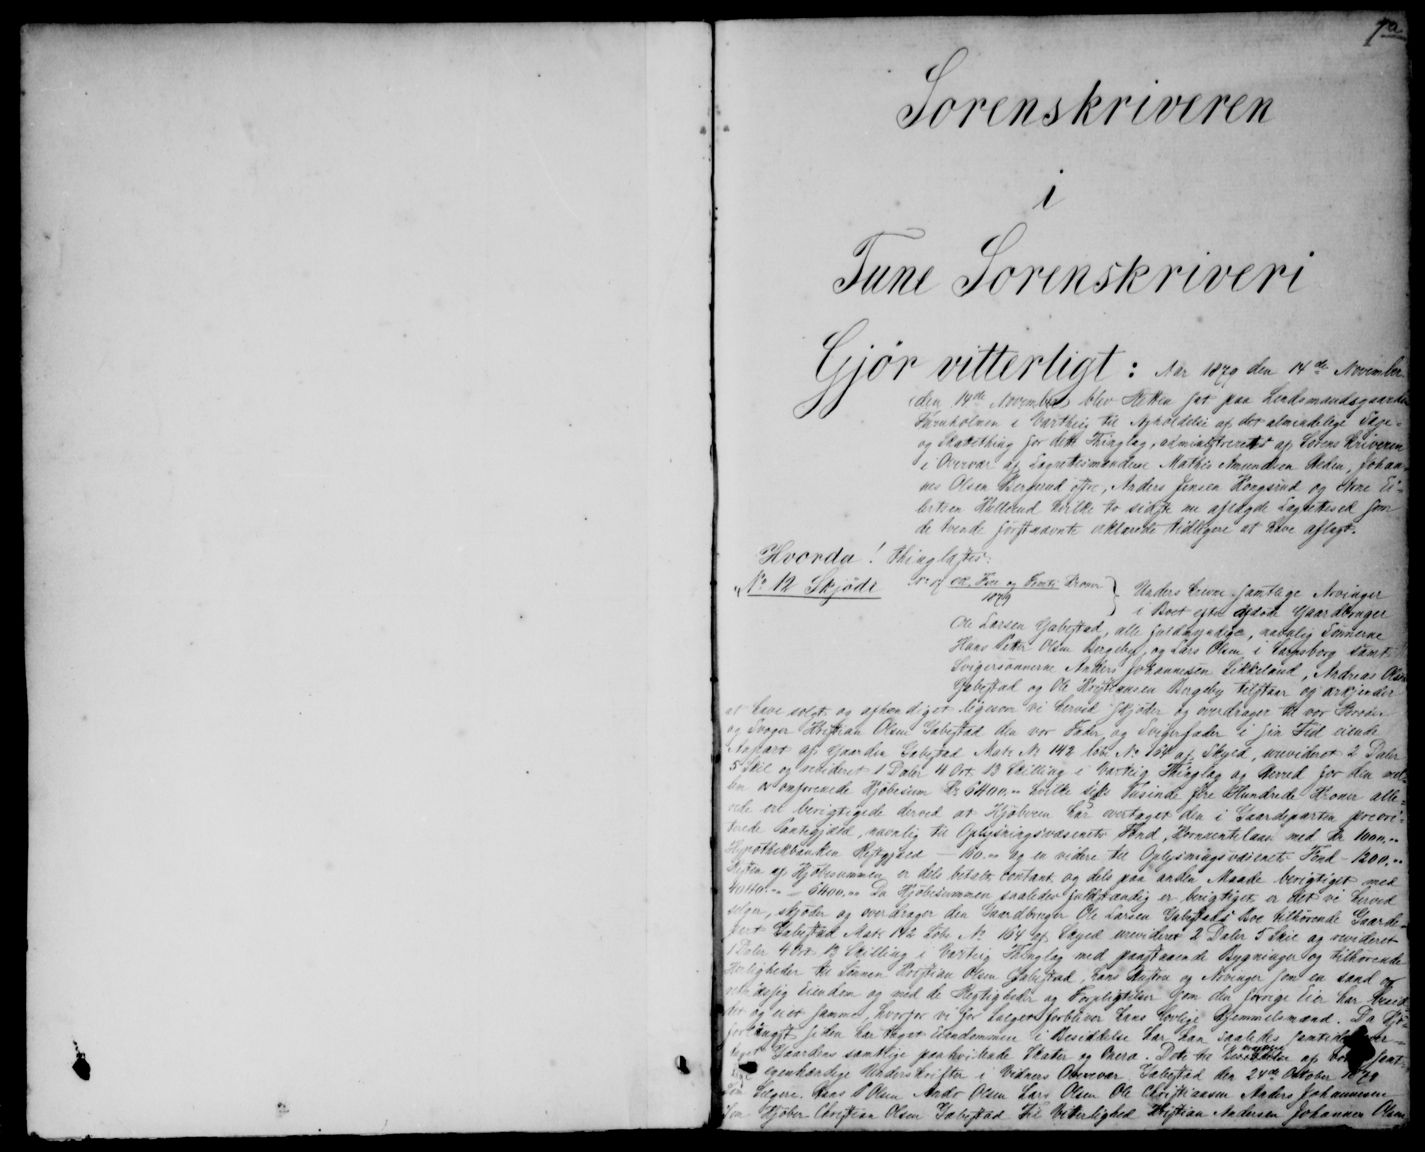 1a
Sorenskriveren
i
Tune Sorenskriveri
Gjör vitterligt: Aar 1879 den 14de November
den 14de November blev Retten sat paa Lendsmandsgaarden
Furuholmen i Varteig til Afholdelse af det almindelige Sage-
og Skattething for dette Thinglag, administreret af Sorenskriveren
i Overvær af Lagrettesmændene Mathis Amundsen Heden, Johan-
nes Olsen Bergerud öfre, Anders Jensen Hougsrud og Arne Ei-
lertsen hvilke to sidste nu aflagde Lagrettesed som
de tvende förstnævnte erklærede tidligere at have aflagt.
Hvorda! thinglæstes:
No 12 Skjöde
No 17 cx. Fire og Femti Kroner
1879
Anders Undertegnede samtlige Arvinger
i Boet efter afdöde Gaardbruger
Ole Larsen Gabestad, alle fuldmyndige, navnlig Sönnerne
Hans Peter Olsen Bergeby, og Lars Olsen i Sarpsborg samt
Svigersönnerne Anders Johannesen Likkeland, Andreas Olsen
Gabestad og Ole Kristiansen Bergeby tilstaar og erkjender
at have solgt og afhændiget ligesom vi herved skjöder og overdrager til vor Broder
og Svoger Kristian Olsen Gabestad den vor Fader og Svigerfader i sin Tid eiende
Anpart af Gaarden Gabestad Matr No 142 Löbe No 164 af Skyld, urevideret 2 Daler
5 Skil og revideret 1 Daler 4 Ort 13 Skilling i Varteig Thinglag og Herred for den mel-
lem os omforenede Kjöbesum Kr 6400.00 hvilke sex Tusinde fire Hundrede Kroner alle-
rede er berigtigede derved at Kjöberen har overtaget den i Gaardeparten priori-
terede Pantegjæld, navnlig til Oplysningsvæsenets Fond, Kornrentelaan med Kr 1000.00
Hypothekbanken Restgjæld - 160.00 og en videre til Oplysningsvæsenets Fond - 1200.00
Resten af Kjöbesummen er dels betalt contant og dels paa anden Maade berigtiget med
4040.00 - 6400.00 Da Kjöbesummen saaledes fuldstændig er berigtiget er det vi herved
selger, skjöder og overdrager den Gaardbruger Ole Larsen Gabestads Bo tilhörende Gaarde-
part Gabestad Matr 142 Löbe No 164 af Skyld urevideret 2 Daler 5 Skil og revideret
1 Daler 4 Ort 13 Skilling i Varteig Thinglag med paastaaende Bygninger og tilhörende
Herligheder til Sönnen Kristian Olsen Gabestad, hans Hustru og Arvinger som en sand og
retmæssig Eiendom og med de Rettigheder og Forpligtelser som den forrige Eier har besid-
det og eiet samme, hvorfor vi for Salget forbliver hans lovlige Hjemmelsmænd. Da Kjö-
forlængst siden har taget Eiendommen i Besiddelse har han saaledes samtidig over-
taget Gaardens samtlige paahvilende Skatter og Onera. Dette til Bekræftelse af vore samt-
lige egenhændige Underskrifter i Vidners Overvær. Gabestad den 24de Oktober 1879
Som Selgere. Hans P Olsen Andr Olsen Lars Olsen Ole Christiansen Anders Johannesen
Som Kjöber Christian Olsen Gabestad Til Vitterlighed Kristian Andersen Johannes Olsen